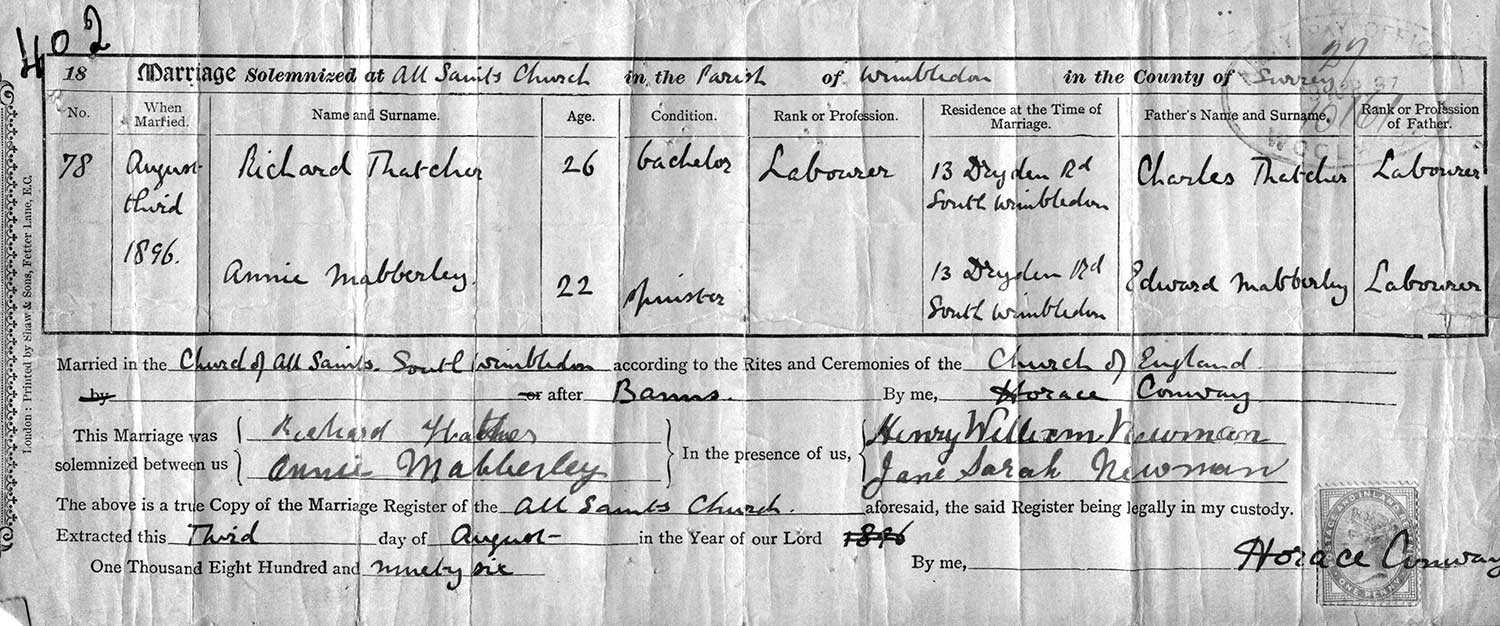 402
18 Marriage Solemnized at All Saints Church in the Parish of Wimbledon in the County of Surrey
No. When Married. Name and Surname. Age. Condition. Rank or Profession. Residence at the Time of Marriage. Father's Name and Surname. Rank or Profession of Father.
78 August third 1896. Richard Thatcher 26 bachelor Labourer 13 Dryden Rd South Wimbledon Charles Thatcher Labourer
Annie Mabberley. 22 Spinster 13 Dryden Rd South Wimbledon Edward Mabberley Labourer
Married in the Church of All Saints. South Wimbledon according to the Rites and Ceremonies of the Church of England.
by or after Banns. By me, Horace Conway
This Marriage was solemnized between us Richard Thatcher Annie Mabberley In the presence of us, Henry William Newman Jane Sarah Newman
The above is a true Copy of the Marriage Register of the All Saints Church. aforesaid, the said Register being legally in my custody.
Extracted this Third day of August in the Year of our Lord 1896
One Thousand Eight Hundred and ninety six By me, Horace Conway
London: Printed by Shaw & Sons, Fetter Lane, E.C.